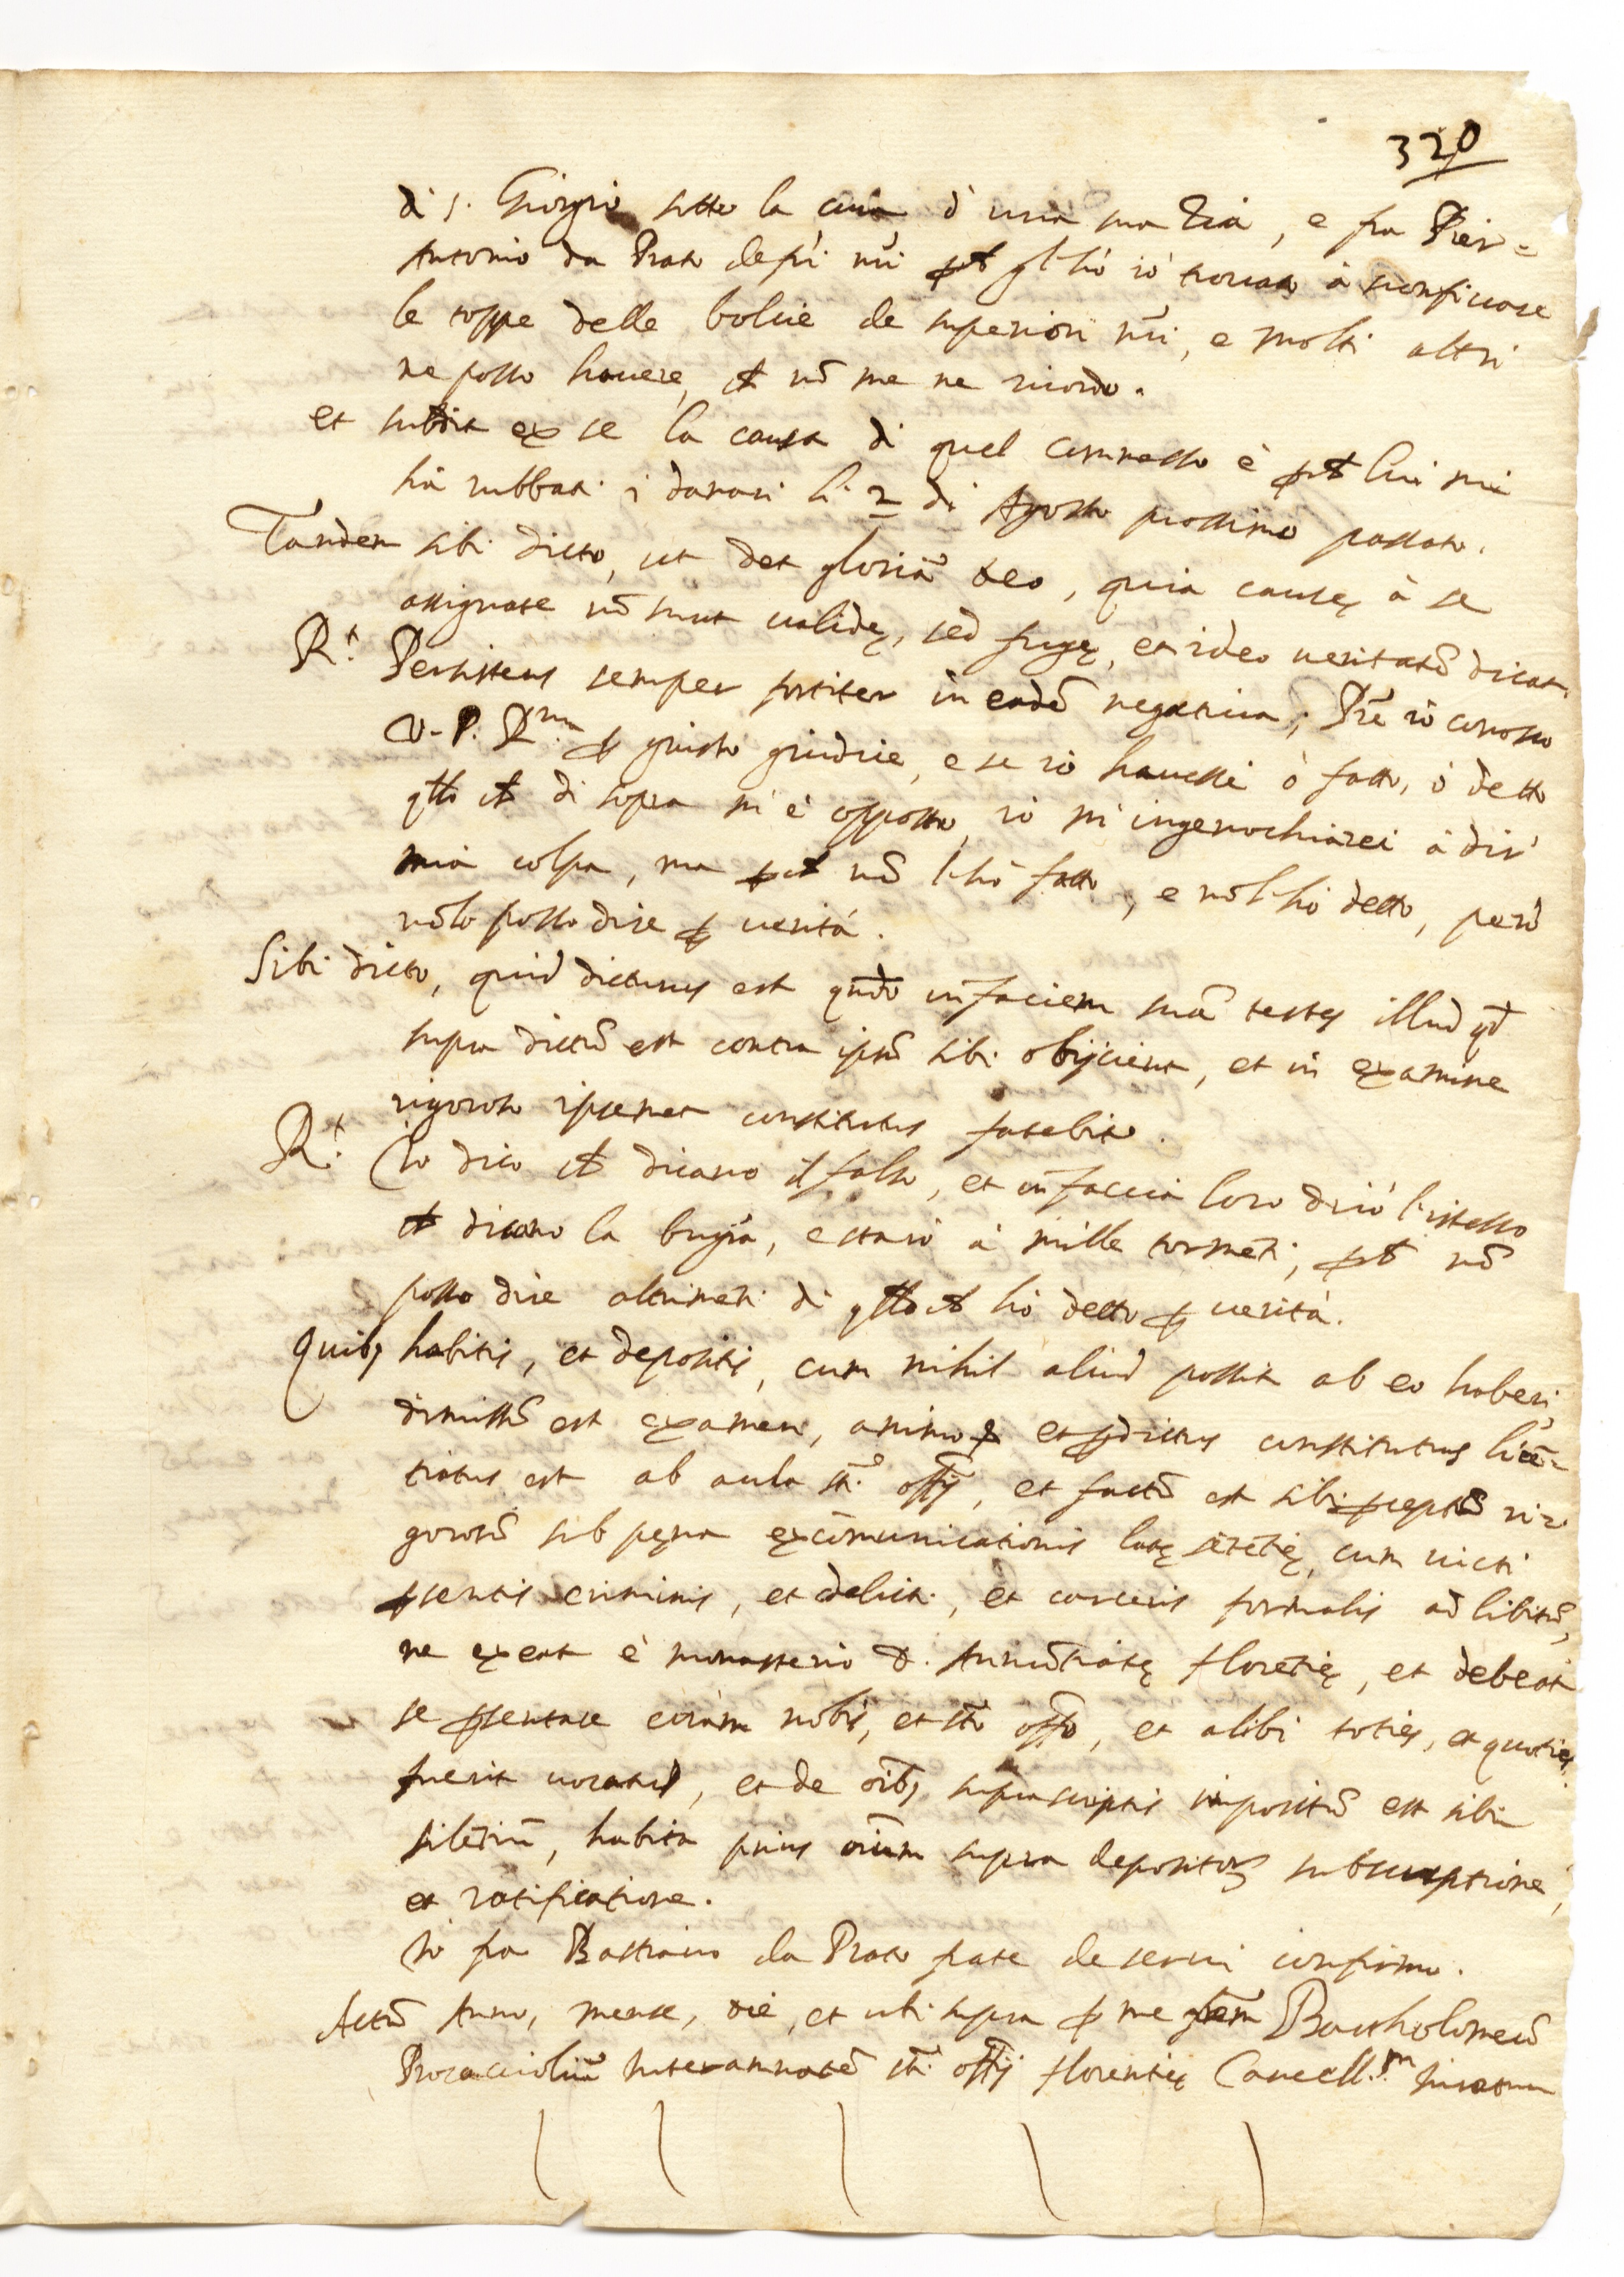 320
di s. Giorgio sotto la cura d'una sua Zia, e fra Pier=
Antonio da Prato de sri nri gl'hò io trouato à sconficcare
le toppe delle bolcie de superiori nri, e molti altri
ne posso hauere, ch nõ me ne ricordo.
et subdit ex se la causa di quel commesso è lui mi
hà rubbati i danari li 2 di Agosto prossimo passato.
Tandem sibi dicto, ut det gloriã Deo, quia causę à se
assignate nõ sunt validę, sed fugę, et ideo veritatẽ dicat.
R.t Persistens semper fortiter in eadẽ negatiua; Prẽ io conosco
V. P. R.ma p giusto giudice, e se io hauessi ò fatto, ò detto
qllo ch di sopra m'è opposto, io m'ingenochiarei à dir'
mia colpa, ma pch nõ l'hò fatto, e nõ l'hò detto, però
nõ lo posso dire p uerità.
Sibi dicto, quid dicturus est qñdo in faciem suã testes illud qd
supra dictũ est contra ipsũ sibi obijcient, et in examine
rigoroso ipsemet constitutus fatebit.
R.t Io dico ch dicano il falso, et in faccia loro dirò l'istesso
ch dicano la bugia, e starò à mille tormẽti, pch nõ
posso dire altrimẽti di qllo ch hò detto p uerità.
Quibꝫ habitis, et depositis, cum nihil aliud possit ab eo haberi,
dimissũ est examen, animo et pdictus constitutus licẽ=
tiatus est ab aula sti offij, et factũ est sibi pceptũ ri=
gorosũ sub pęna excõmunicationis latę sẽtẽtię, cum uicti
psentis criminis, et delicti, et carceris formalis ad libitũ,
ne exeat è monasterio D. Annũtiatę Florẽtię, et debeat
se psentare coràm nobis, et sto offo, et alibi toties, et quoties
fuerit uocatus, et de oibꝫ suprascriptis impositũ est sibi
silẽtiũ, habita prius oium supra depositoꝝ subscriptione,
et ratificatione.
Io fra Bastiano da Prato frate de serui confirmo.
Actũ Anno, mense, die, et ubi supra p me frem Bartholomeũ
Procacciolũ Interamnatẽ sti offij florentię Cancell.m iuratum